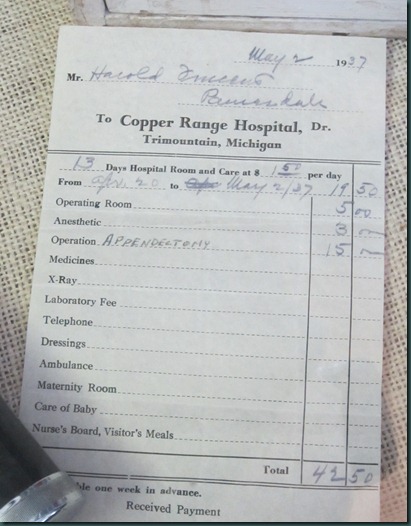 May 2 1937
Mr. Harold Vincent
To Copper Range Hospital, Dr.
Trimountain, Michigan
13 Days Hospital Room and Care at $ 1 50 per day
From Apr. 20 to May 2/37 19 50
Operating Room 5 00
Anesthetic 3 —
Operation APPENDECTOMY 15 —
Medicines
X-Ray
Laboratory Fee
Telephone
Dressings
Ambulance
Maternity Room
Care of Baby
Nurse's Board, Visitor's Meals
Total 42 50
one week in advance.
Received Payment